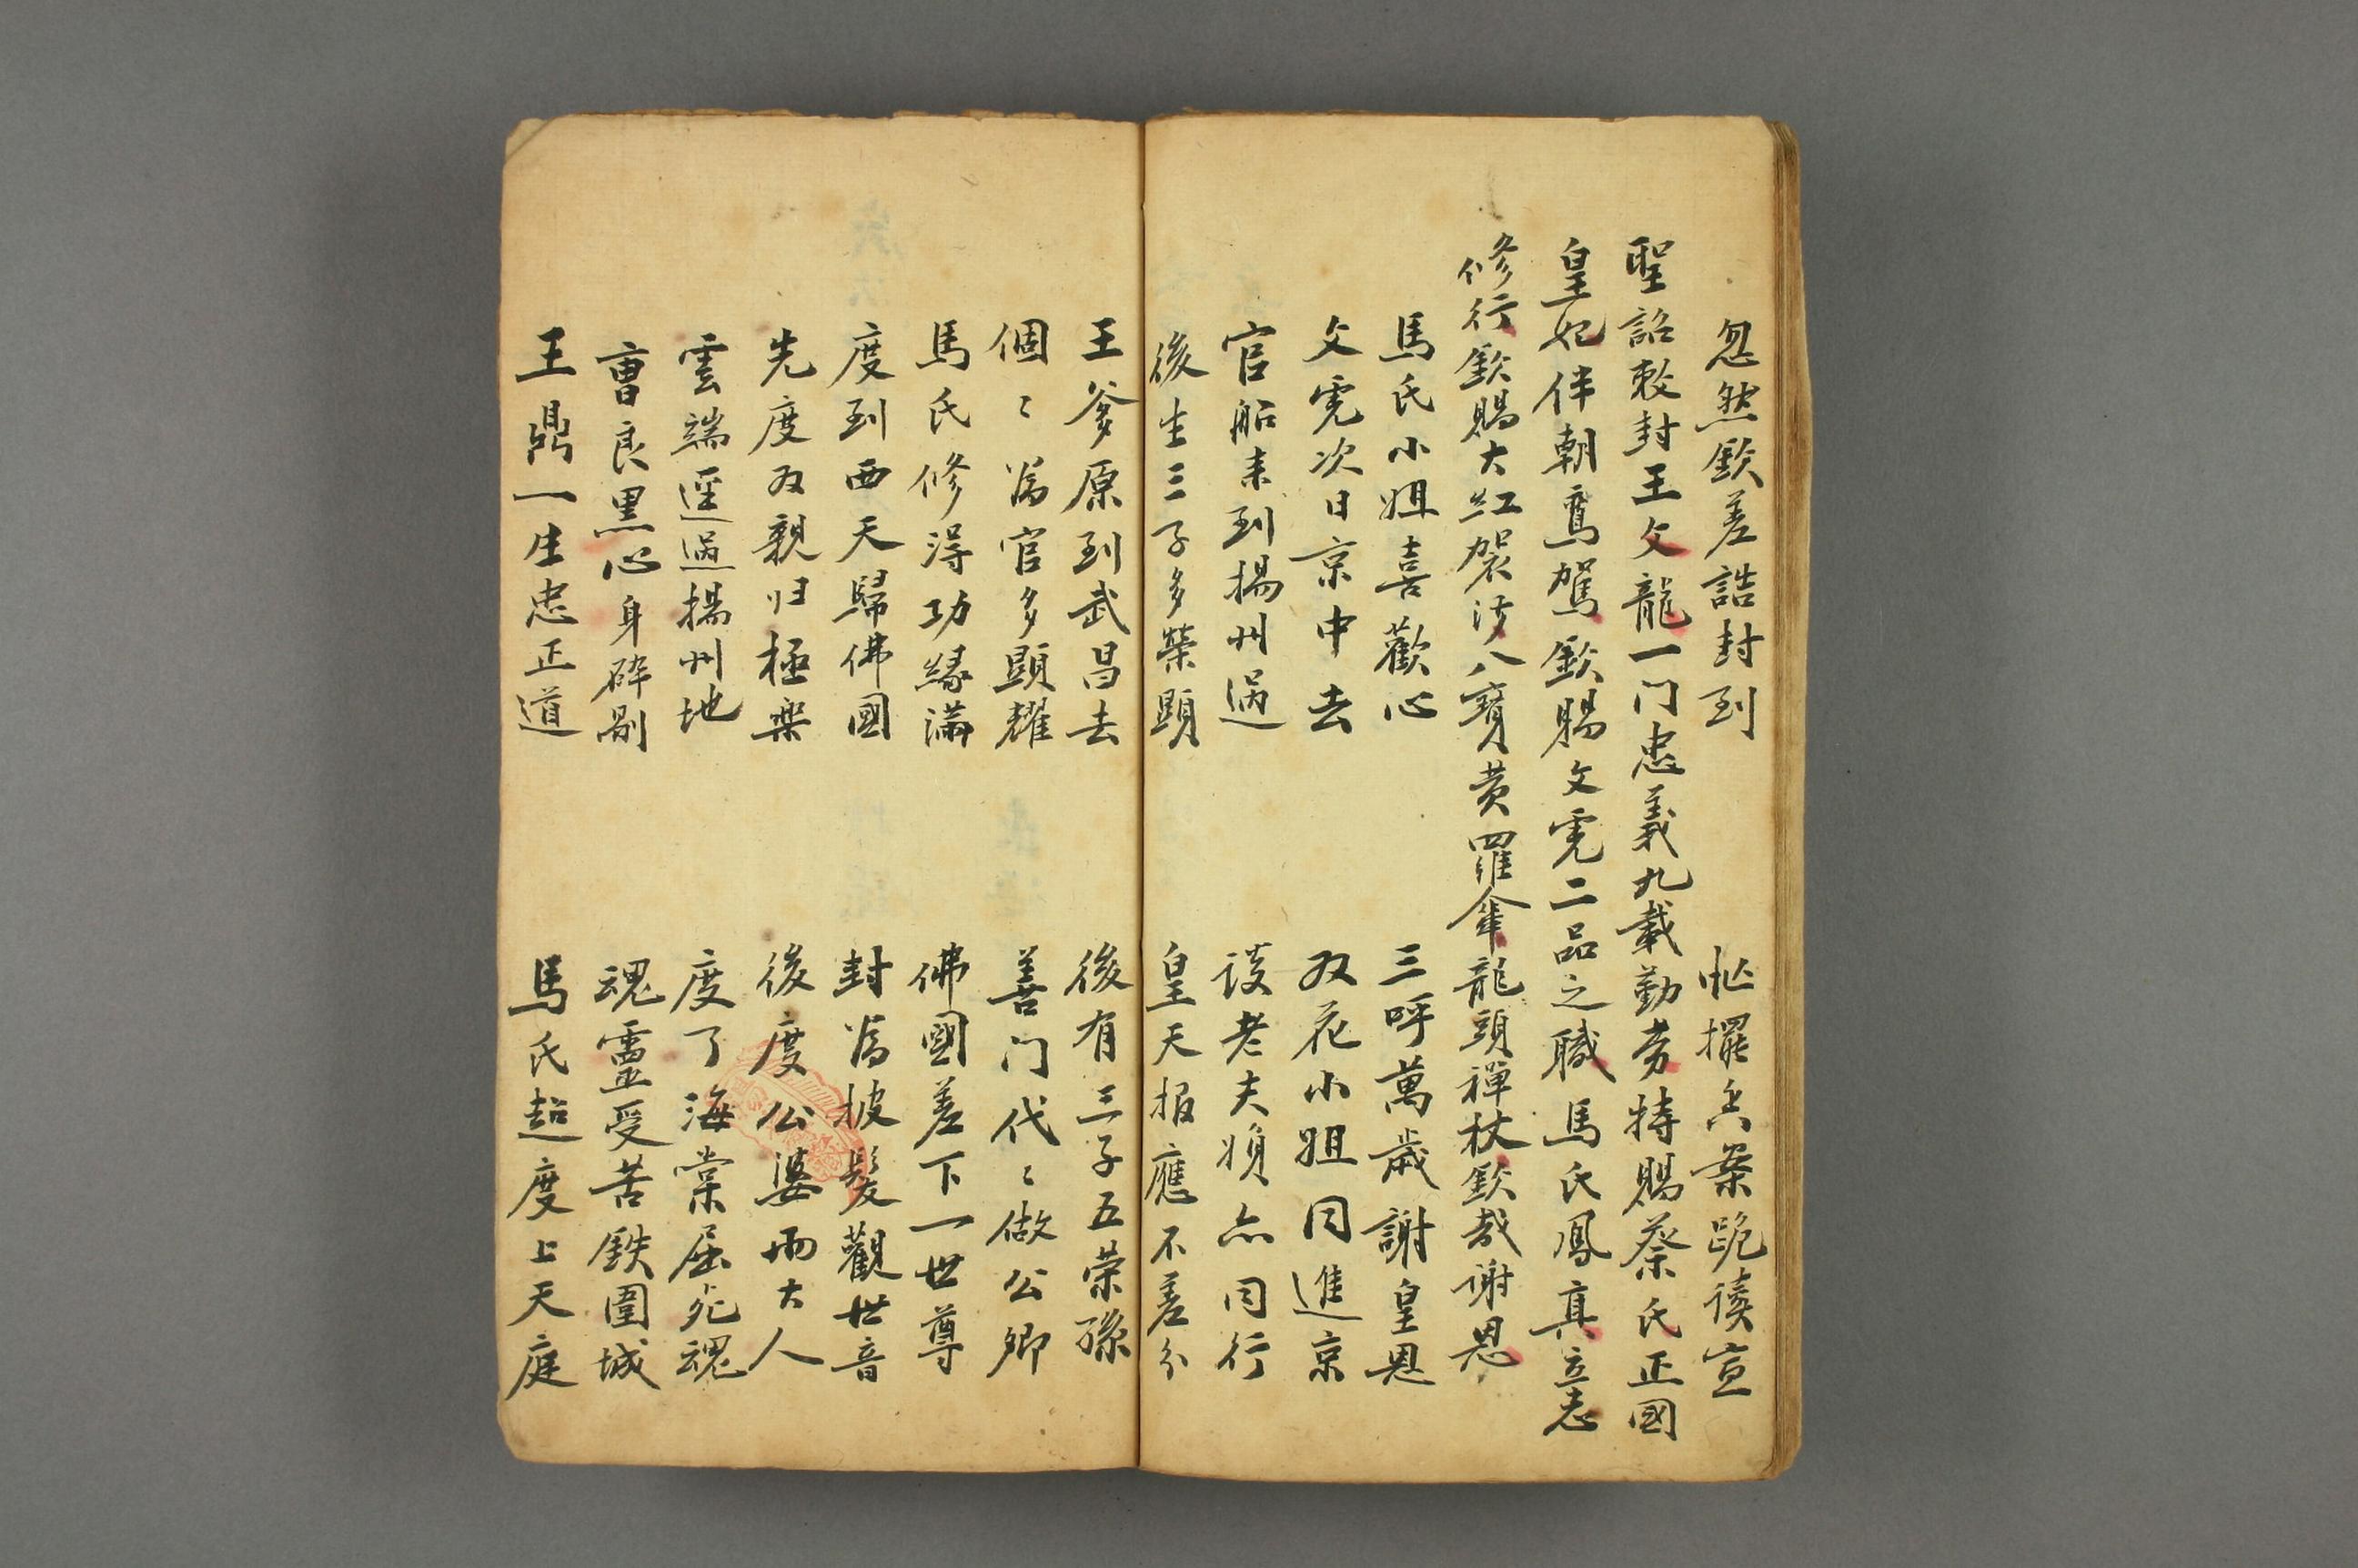 忽然欽差誥封到　忙擺香案跪讀宣
聖詔敕封王文龍一门忠義九載勤劳特賜蔡氏正國
皇妃伴朝鸞駕欽賜文虎二品之職馬氏鳳真立志
修行欽賜大红袈裟八寶黄羅傘龍頭禪杖欽哉谢恩
馬氏小姐喜歡心　三呼萬歲謝皇恩
文虎次日京中去　双花小姐同進京
官船来到揚州過　談老夫婦亦同行
後生三子多榮顕　皇天报應不差分
王爹原到武昌去　後有三子五荣孫
個〻為官多顕耀　善门代〻做公卿
馬氏修得功緣滿　佛國差下一世尊
度到西天歸佛國　封為披髮觀世音
先度双親归極楽　後度公婆両大人
雲端逕過揚州地　度了海棠屈死魂
曹良黑心身碎剮　魂靈受苦鉄圍城
王鼎一生忠正道　馬氏超度上天庭